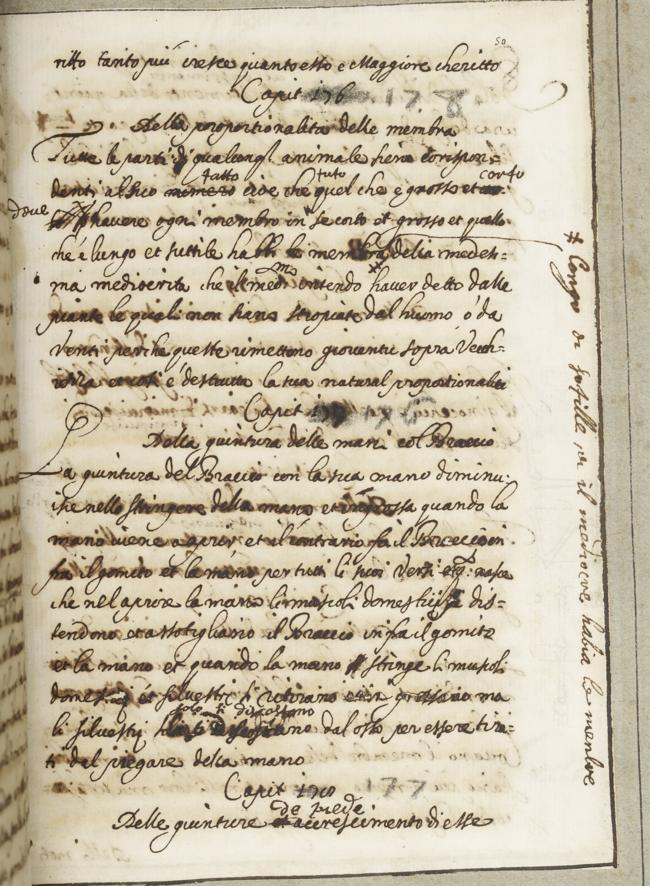 50
ritto tanto piu cresce quanto esso e Maggiore che ritto
Capit 176 178
Della proportionalita delle membra
Tutte le parti di qualonq animale siene corispon-
denti al suo tutto cioe che quel che e grosso et corto
deve havere ogni membro in se corto et grosso et quello
che e lungo et suttile habbi le membra della medes-
ma mediocrita che il medmo intendo haver detto delle
piante le quali non siano stropiate dal huomo o da
Venti perche queste rimettono gioventu sopra Vecch-
iezza et cosi e destrutta la sua natural proportionalita
Capit
Della giuntura delle mani col Braccio
La giuntura del Braccio con la sua mano diminu-
isce nello stringere della mano et ingrossa quando la
mano viene aprir et il contrario fa il Braccio in
fra il gomito et la mano per tutti li suoi Versi et nasce
che nel aprire la mano li muscoli domestici dis-
tendono et assotigliano il Braccio infra il gomito
et la mano et quando la mano stringe li muscoli
domestici et silvestri si ritirano et in grossano ma
li silvestri solo si discostano dal osso per essere tira-
ti dal piegare della mano
Capit 177
de piede
Delle giunture et accrescimento di esse
# Longo di sottille et il mediocre habia le membre